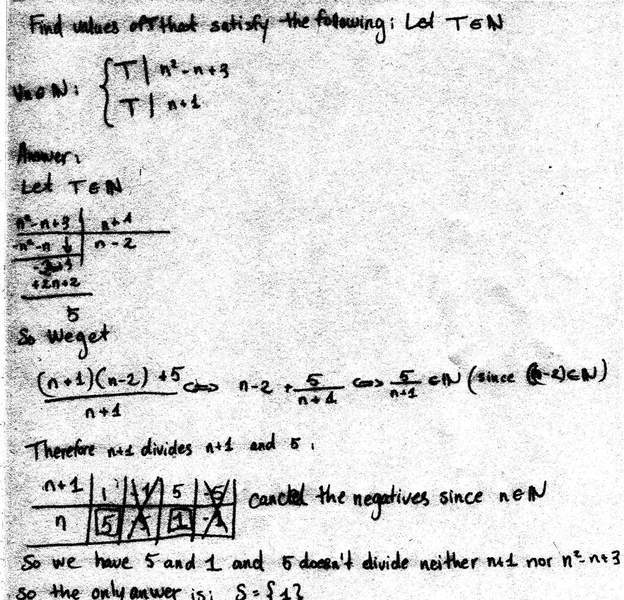 Find values of T that satisfy the following: Let T∈N
∀n∈N: { T | n²-n+3
T | n+1
Answer:
Let T∈N
n²-n+3 | n+1
-n²-n ↓ | n-2
+2n+2
5
So We get
(n+1)(n-2)+5 / n+1 ⇔ n-2 + 5/n+1 ⇔ 5/n+1 ∈N (since (n-2)∈N)
Therefore n+1 divides n+1 and 5.
n+1 | 1 | -1 | 5 | -5
n | 5 | | 1 | -1
cancel the negatives since n∈N
So we have 5 and 1 and 5 doesn't divide neither n+1 nor n²-n+3
So the only anwer is: S={1}